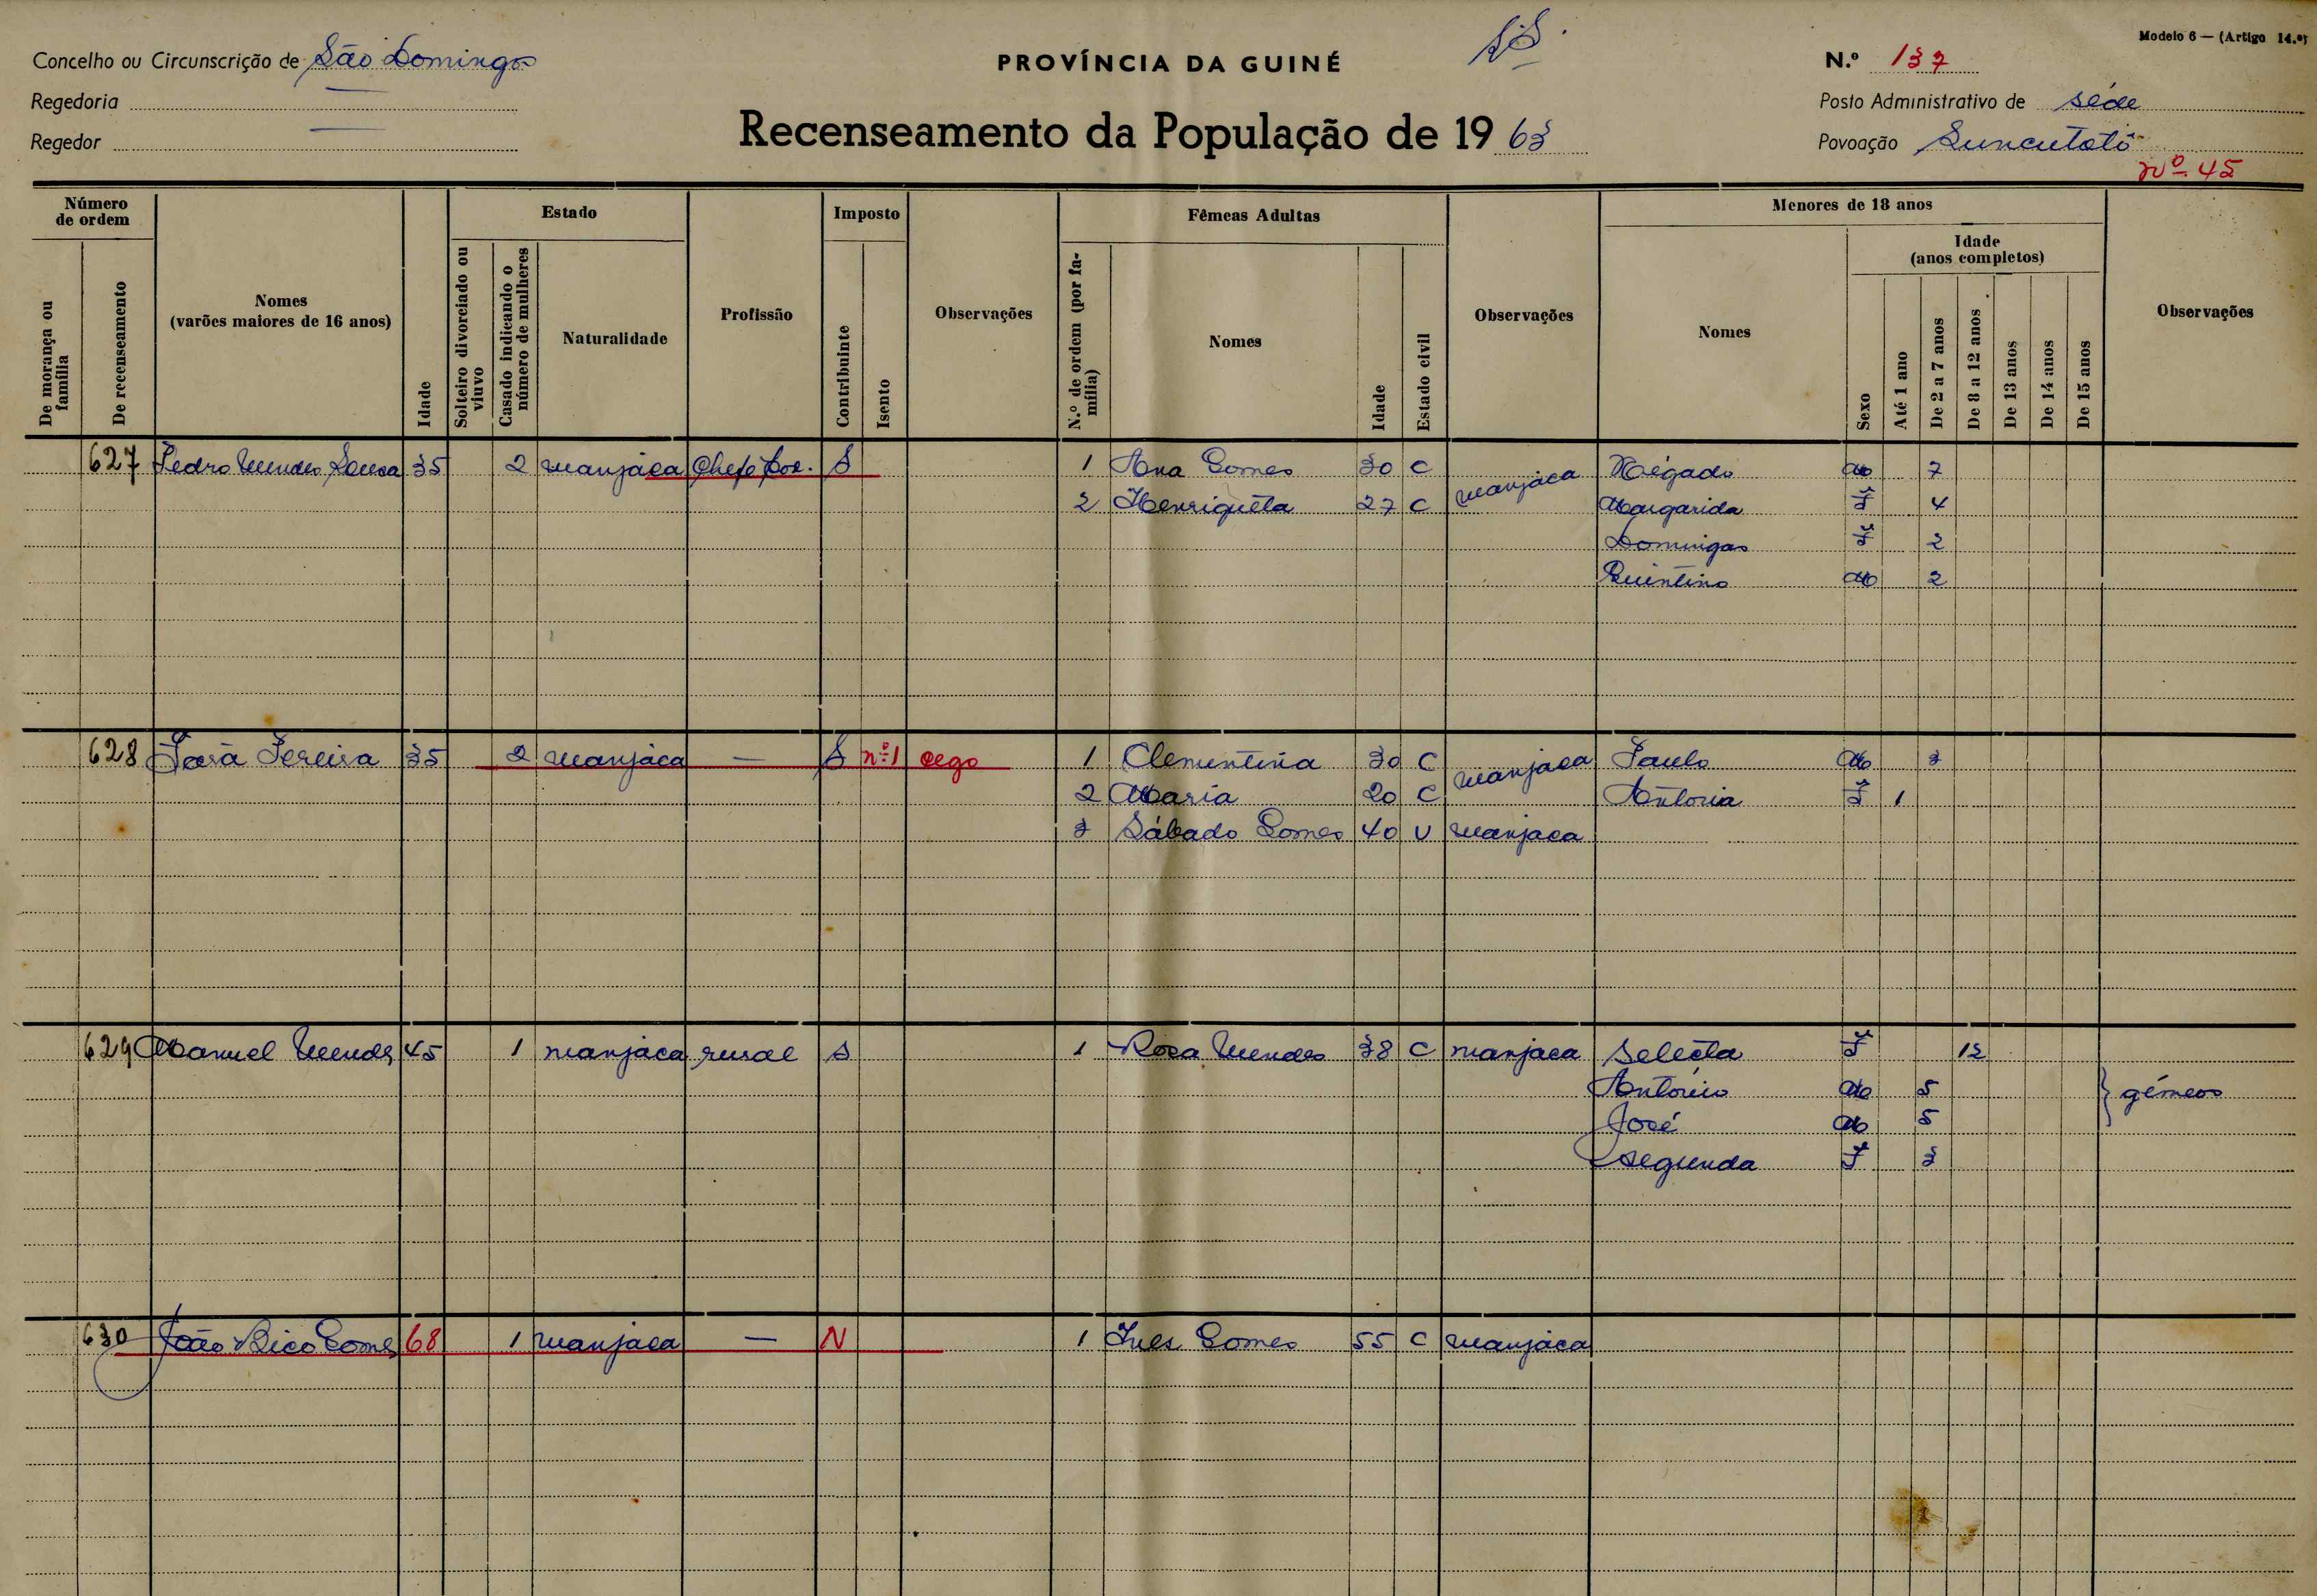 Modelo 6 — (Artigo 14.º)
Concelho ou Circunscrição de São Domingos
PROVÍNCIA DA GUINÉ
N.º 137
Regedoria —
Posto Administrativo de séde
Regedor —
Recenseamento da População de 19 63
Povoação Suncutotô
nº 45
Número de ordem
Estado
Imposto
Fêmeas Adultas
Menores de 18 anos
Idade (anos completos)
De morança ou família
De recenseamento
Nomes (varões maiores de 16 anos)
Idade
Solteiro divorciado ou viuvo
Casado indicando o número de mulheres
Naturalidade
Profissão
Contribuinte
Isento
Observações
N.º de ordem (por família)
Nomes
Idade
Estado civil
Observações
Nomes
Sexo
Até 1 ano
De 2 a 7 anos
De 8 a 12 anos
De 13 anos
De 14 anos
De 15 anos
Observações
627 Pedro Mendes Sousa 35 2 manjaca Chefe Pov. S 1 Ana Gomes 30 C manjaca Negado M 7
2 Henriqueta 27 C Margarida F 4
Domingas F 2
Quintino M 2
628 Pereira 35 2 manjaca — S nº 1 cego 1 Clementina 30 C manjaca Paulo M 3
2 Maria 20 C Antonia F 1
3 Sábado Gomes 40 V manjaca
629 Manuel Mendes 45 1 manjaca rural S 1 Rosa Mendes 38 C manjaca Selecta F 12
António M 5 } gémeos
José M 5
Segunda F 3
630 João Bico Gomes 68 1 manjaca — N 1 Ines Gomes 55 C manjaca